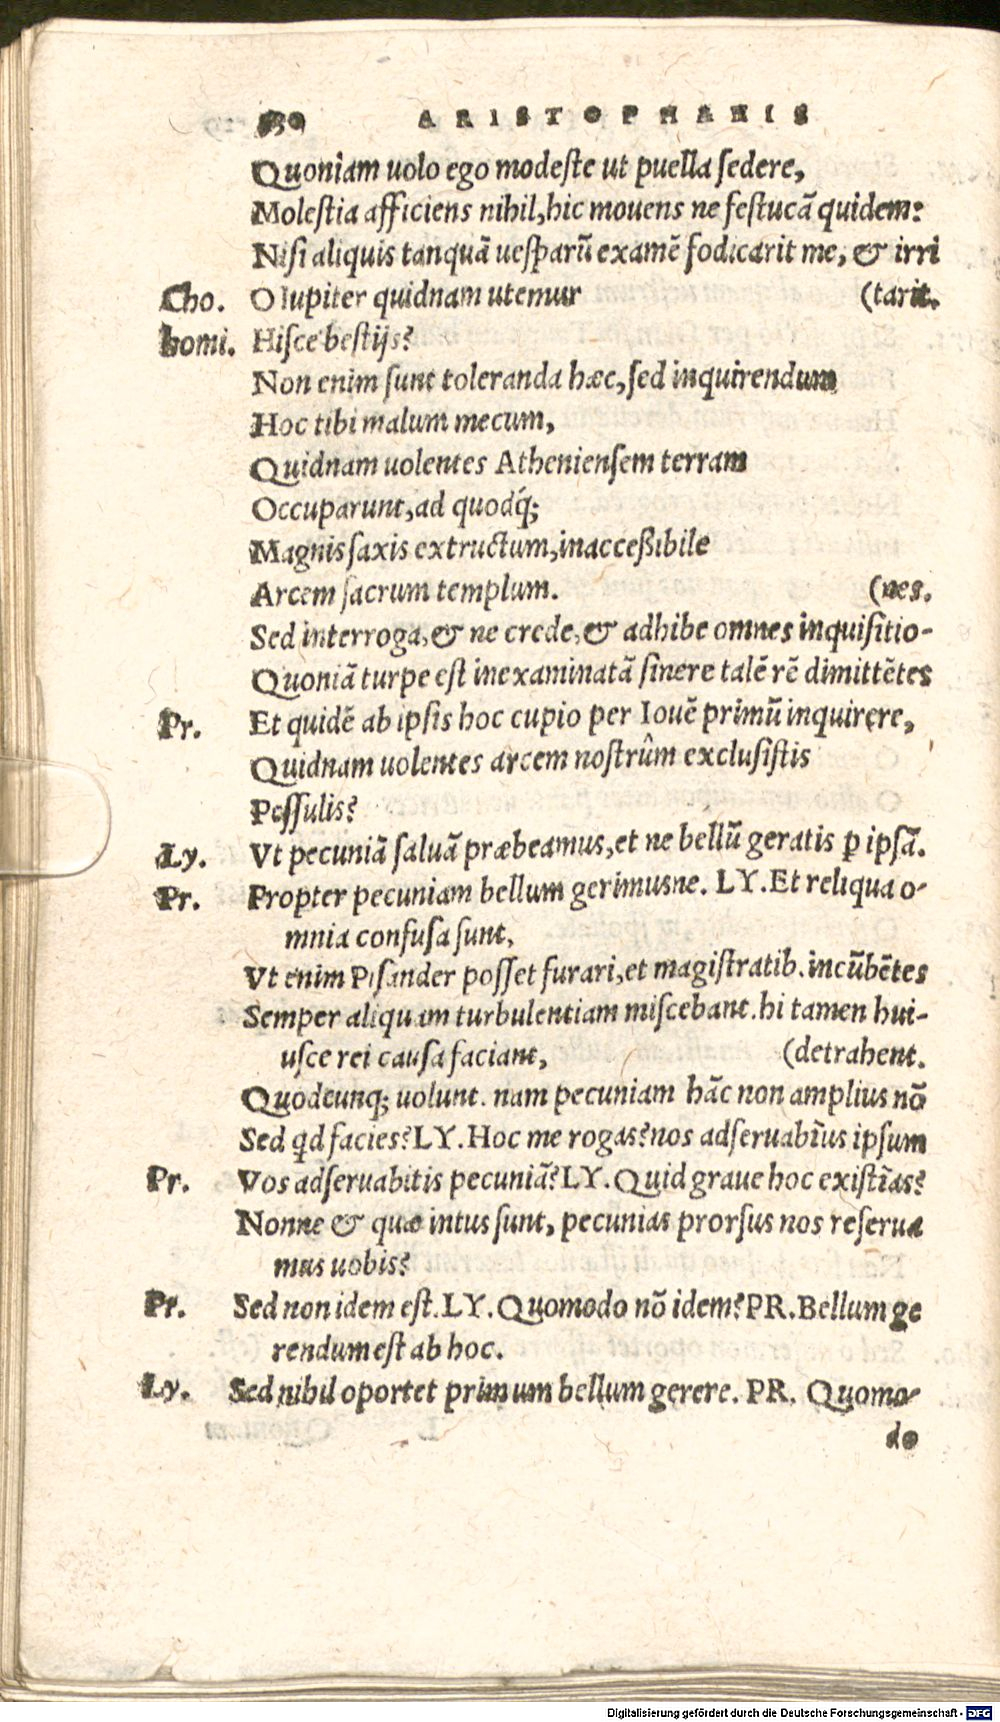 ARISTOPHANIS
Quoniam uolo ego modeste ut puella sedere,
Molestia afficiens nihil, hic mouens ne festucã quidem:
Nisi aliquis tanquã uesparũ examẽ fodicarit me, & irri
Cho. O Iupiter quidnam utemur (tarit.
homi. Hisce bestijs?
Non enim sunt toleranda hæc, sed inquirendum
Hoc tibi malum mecum,
Quidnam uolentes Atheniensem terram
Occuparunt, ad quodq́;
Magnis saxis extructum, inaccessibile
Arcem sacrum templum. (nes.
Sed interroga, & ne crede, & adhibe omnes inquisitio-
Quoniã turpe est inexaminatã sinere talẽ rẽ dimittẽtes
Pr. Et quidẽ ab ipsis hoc cupio per Iouẽ primũ inquirere,
Quidnam uolentes arcem nostrûm exclusistis
Pessulis?
Ly. Vt pecuniã saluã præbeamus, et ne bellũ geratis ꝑ ipsã.
Pr. Propter pecuniam bellum gerimusne. LY. Et reliqua o-
mnia confusa sunt,
Vt enim Pisander posset furari, et magistratib. incũbẽtes
Semper aliquam turbulentiam miscebant. hi tamen hui-
usce rei causa faciant, (detrahent.
Quodcunq; uolunt. nam pecuniam hãc non amplius nõ
Sed qd facies? LY. Hoc me rogas? nos adseruabĩus ipsum
Pr. Vos adseruabitis pecuniã? LY. Quid graue hoc existĩas?
Nonne & quæ intus sunt, pecunias prorsus nos reserua
mus uobis?
Pr. Sed non idem est. LY. Quomodo nõ idem? PR. Bellum ge
rendum est ab hoc.
Ly. Sed nihil oportet primum bellum gerere. PR. Quomo-
do
Digitalisierung gefördert durch die Deutsche Forschungsgemeinschaft - DFG